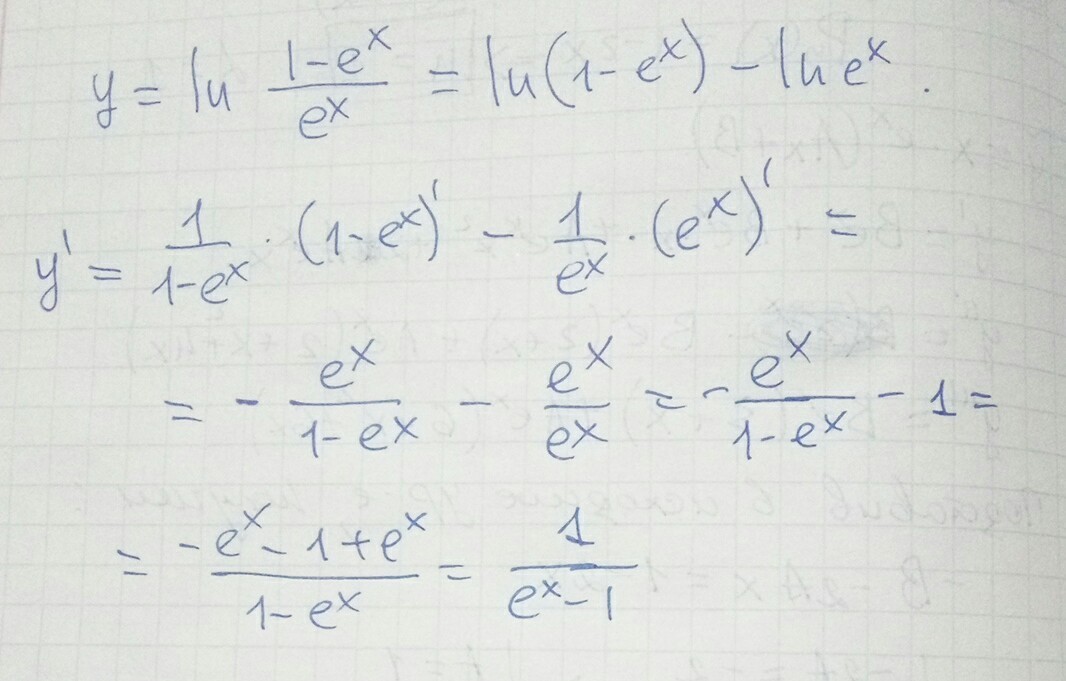 y = ln (1-e^x)/(e^x) = ln(1-e^x) - ln e^x .
y' = 1/(1-e^x) · (1-e^x)' - 1/(e^x) · (e^x)' =
= - (e^x)/(1-e^x) - (e^x)/(e^x) = - (e^x)/(1-e^x) - 1 =
= (-e^x - 1 + e^x)/(1-e^x) = 1/(e^x-1)